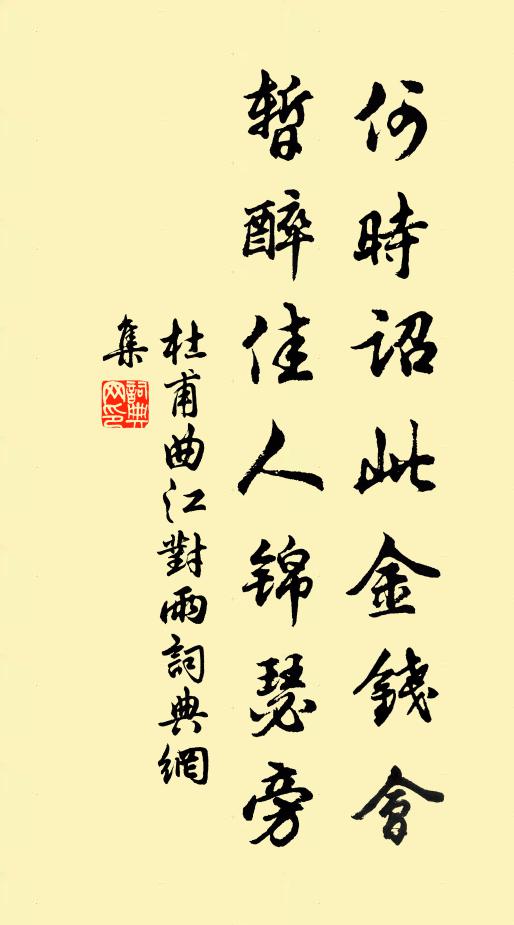 何時詔此金錢會
暫醉佳人錦瑟旁
杜甫曲江對雨詞典網
集
詞典
网印